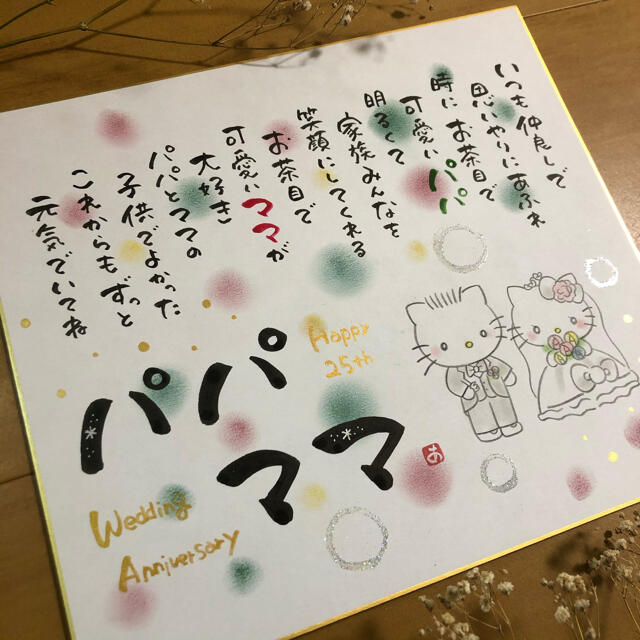 いつも仲良しで
思いやりにあふれ
時にお茶目で
可愛いパパ
明るくて
家族みんなを
笑顔にしてくれる
お茶目で
可愛いママが
大好き
パパとママの
子供でよかった
これからもずっと
元気でいてね
Happy
25th
パパ
ママ
あ
Wedding
Anniversary